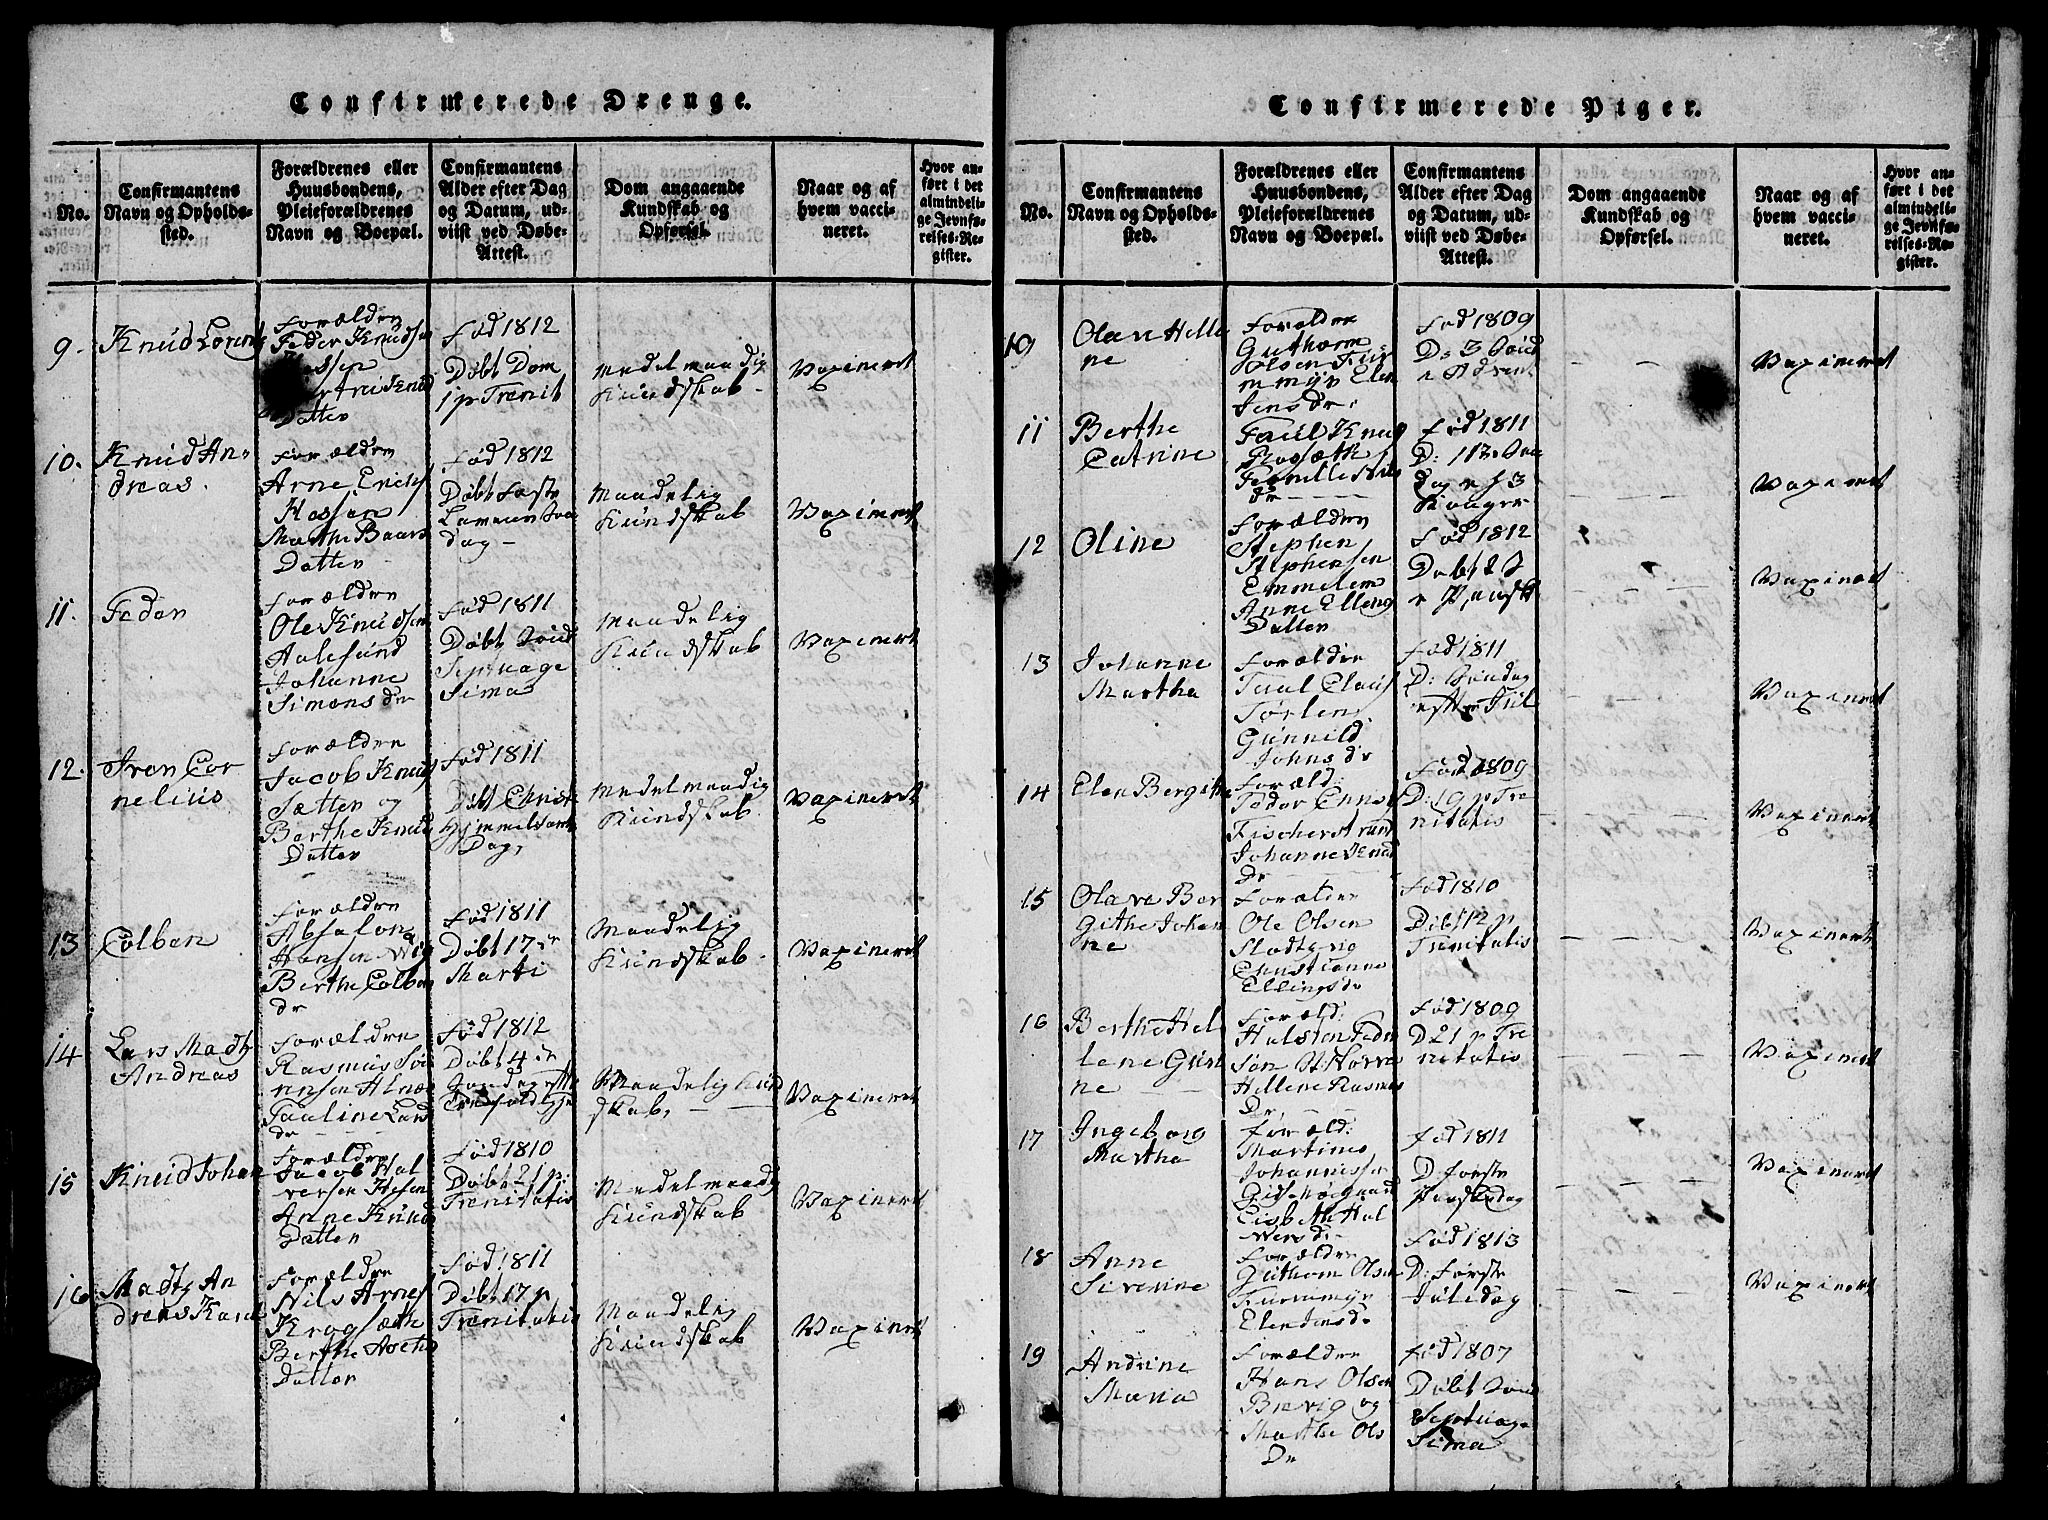 Confirmerede Drenge.
No.
Confirmantens
Navn og Opholds-
sted.
Forældrenes eller
Huusbondens,
Pleieforældrenes
Navn og Boepæl.
Confirmantens
Alder efter Dag
og Datum, ud-
viist ved Døbe-
Attest.
Dom angaaende
Kundskab og
Opførsel.
Naar og af
hvem vacci-
neret.
Hvor an-
ført i det
almindeli-
ge Jevnfø-
relses-Re-
gister.
9.
Knud Lorentz
Forældre
Peder Knudsen
Datter
Fød 1812
Døbt Dom
1 p Trenit
Medelmaadig
Kundskab
Vaxineret
10.
Knud An-
dreas.
Forældre
Arne Erichs
Hessen
Marthe Baars
Datter
Fød 1812
Døbt Faste
Lavens Søn
dag
Maadelig
Kundskab
Vaxineret
11.
Peder
Forældre
Ole Knudsen
Aalesund
Johanne
Simons dr
Fød 1811
Døbt Sønd
Septuage
Sima
Maadelig
Kundskab
Vaxineret
12.
Iver Cor
nelius
Forældre
Jacob Knuds
Sætter og
Berthe Knuds
Datter
Fød 1811
Døbt Christi
Hjmmelfarts
Dag,
Medelmaadig
Kundskab
Vaxineret
13
Colben
Forældre
Absalon
Hansen Wig
Berthe Colben
dr
Fød 1811
Døbt 17de
Marti
Maadelig
Kundskab
Vaxineret
14
Lars Madtz
Andreas
Forældre
Rasmus Sø
rensen Alnæs
Pauline Lars
dr
Fød 1812
Døbt 4de
Søndag efter
Maadelig Kund
skab,
Vaxineret
15
Knud Johan
Forældre
Jacob Hal
versen Hessen
Anne Knuds
Datter
Fød 1810
Døbt 21 p:
Trenitatis
Medelmaadig
Kundskab
Vaxineret
16
Madtz An
dreas Karel
Forældre
Nils Arnes
Kragsæth
Berthe
Datter
Fød 1811
Døbt 17 p
Trenitatis
Maadelig
Kundskab
Vaxineret
Confirmerede Piger.
No.
Confirmantens
Navn og Opholds-
sted.
Forældrenes eller
Huusbondens,
Pleieforældrenes
Navn og Boepæl.
Confirmantens
Alder efter Dag
og Datum, ud-
viist ved Døbe-
Attest.
Dom angaaende
Kundskab og
Opførsel.
Naar og af
hvem vacci-
neret.
Hvor an-
ført i det
almindeli-
ge Jevnfø-
relses-Re-
gister.
10
Olave Helle
ne
Forældre
Guthorm
Olsen Fur
mmyr Elen
Jens dr.
Fød 1809
D: 3 Sønd
i Advent
Vaxineret
11
Berthe
Catrine
Paul Knuds
Pernille Nils
dr
Fød 1811
D: 113 Søn
dag
Vaxineret
12
Oline
Forældre
Stephen
Stephensen
Emmelem
Anne Ellings
Datter
Fød 1812
Døbt 2 S
Vaxineret
13
Johanne
Martha
Forældre
Paul Claus
Tørlen
Gunnild
Johns dr
Fød 1811
D: Søndag
efter Jul
Vaxineret
14
Elen Bergithe
Foræld:
Peder Ennes
Fischerstrand
Johanne Knud
Dr
Fød 1809
D: 19 p Tre
nitatis
Vaxineret
15
Olave Ber
githe Johan
ne
Forælder
Ole Olsen
Slodtævig
Christianne
Ellings dr
Fød 1810
Døbt 12 p
Trenitatis
Vaxineret
16
Berthe Hel
lene Guri
ne
Foræld:
Halsten Peder
Søn
Hellene Rasmus
Dr
Fød 1809
D 21 p Tre
nitatis
Vaxineret
17
Ingeborg
Martha
Foræld:
Martinus
Johannesen
Lisbeth Hal
vers dr
Fød 1811
D: første
Paaskedag
Vaxineret
18
Anne
Siverine
Forældre
Guthorm Olsen
Furmmyr
Elen Jens dr
Fød 1813
D: Første
Juledag
Vaxineret
19
Andrine
Maria
Forældre
Hans Olsen
Brevig og
Marthe Ols
Dr
Fød 1807
Døbt Sønd
Septuage
Sima